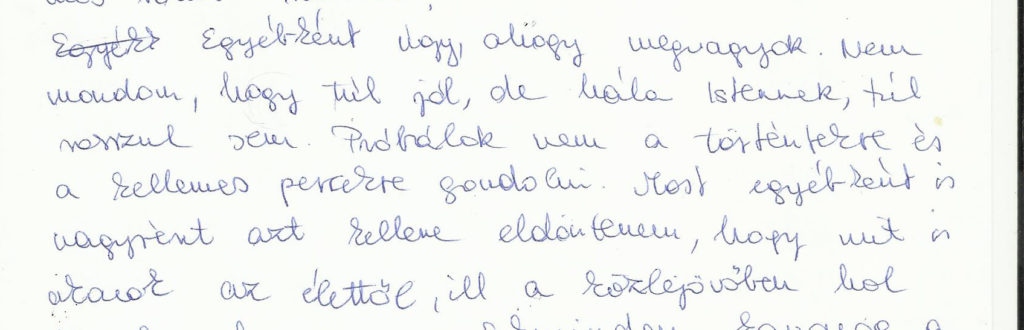 Egyébk Egyébként úgy, ahogy megvagyok. Nem
mondom, hogy túl jól, de hála Istennek, túl
rosszul sem. Próbálok nem a történtekre és
a kellemes percekre gondolni. Most egyébként is
nagyrént azt kellene eldöntenem, hogy mit is
akarok az élettől, ill a közeljövőben hol